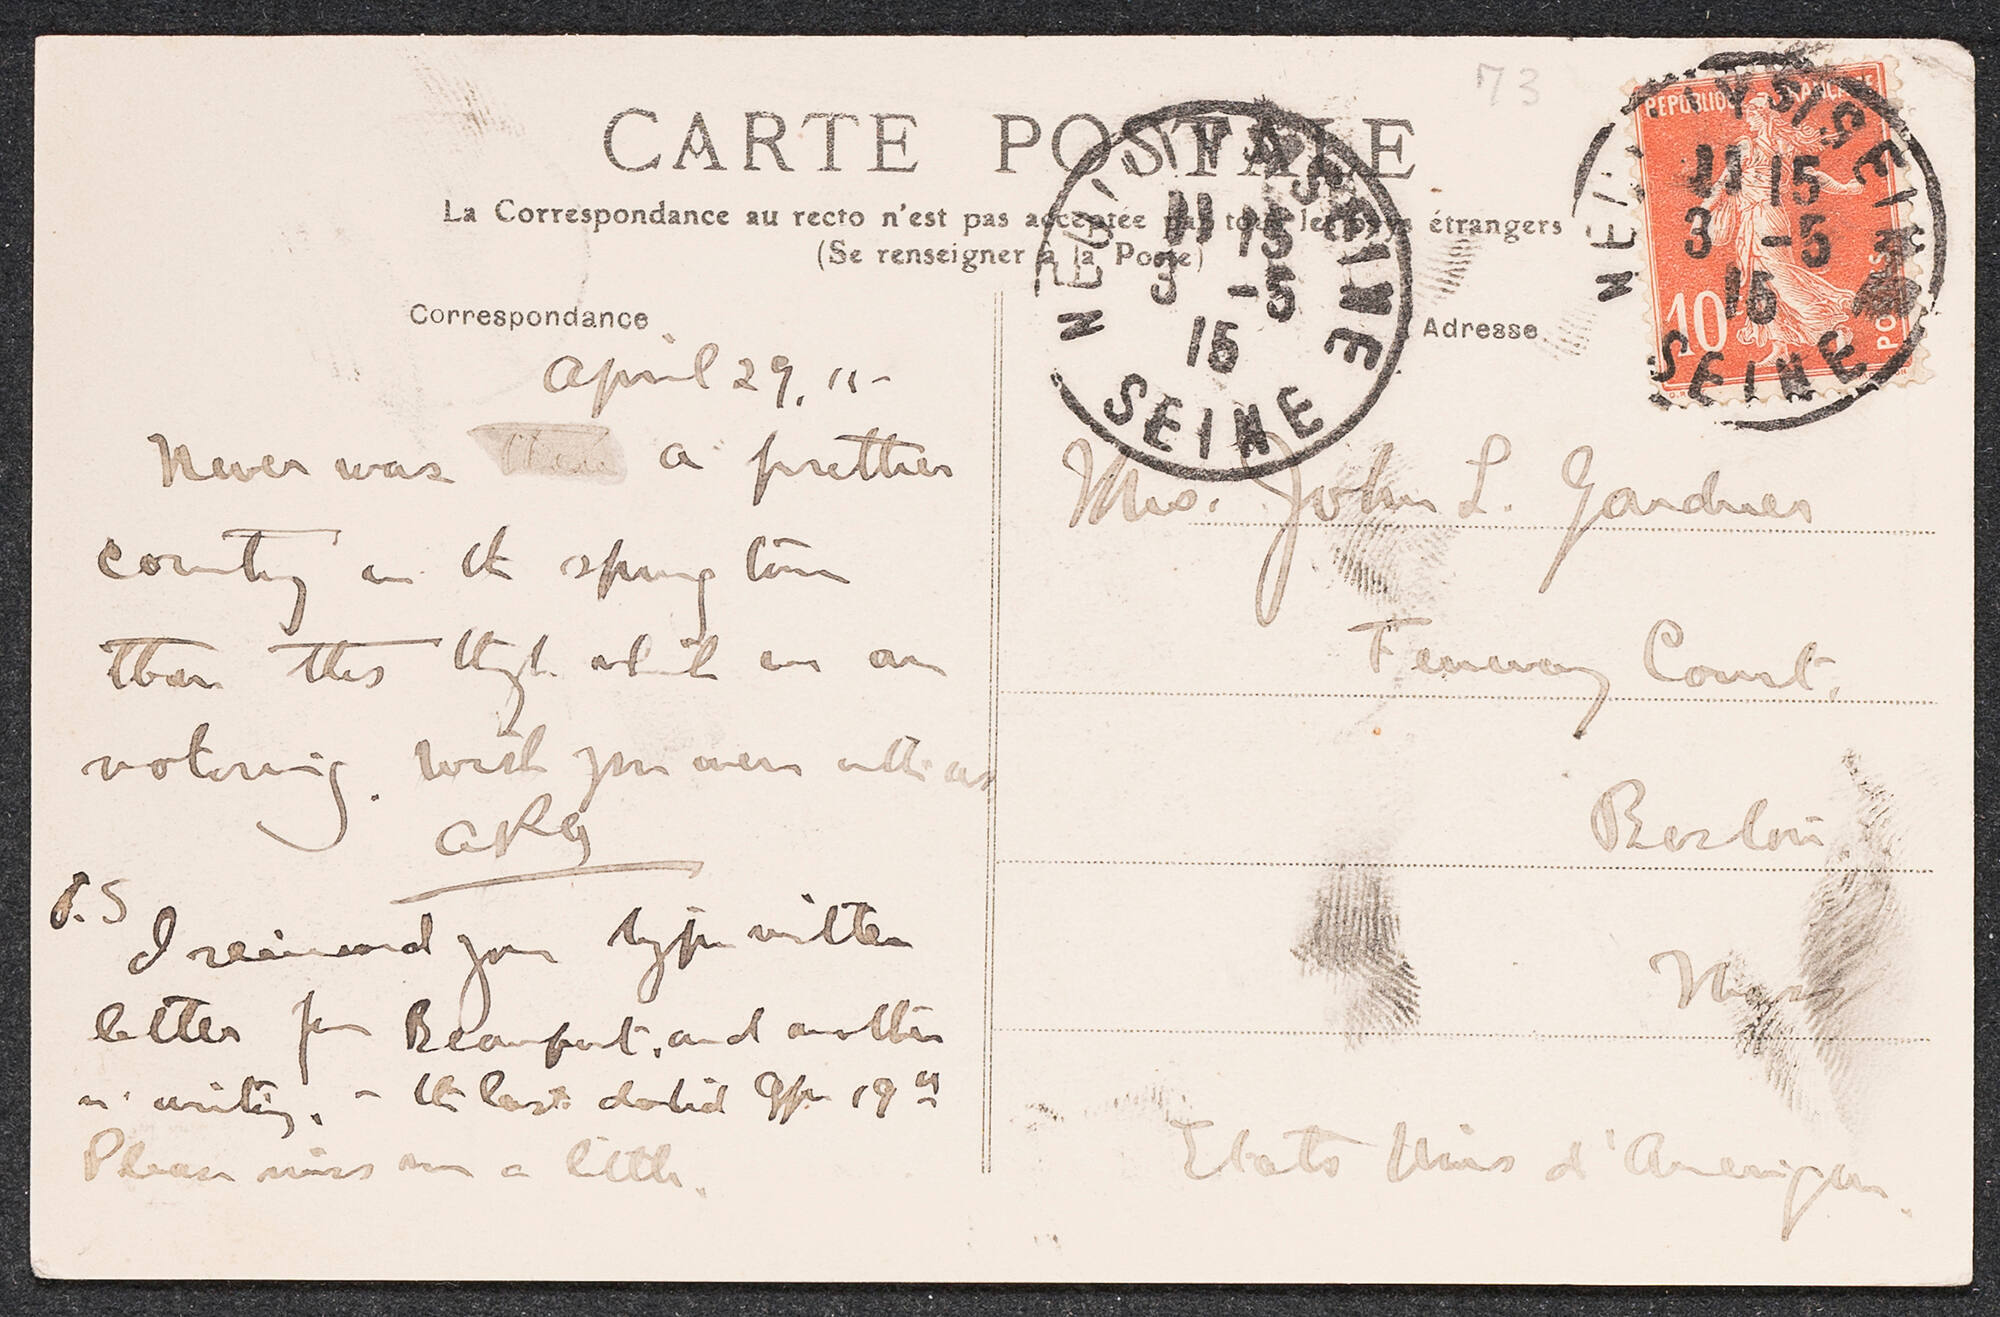 73
CARTE POSTALE
La Correspondance au recto n'est pas acceptée par tous les pays étrangers
(Se renseigner à la Poste)
Correspondance
April 29, 15-
Never was a prettier
country in the spring time
than this through which we are
motoring. Wish you were with us
ARG
P.S
I received your type written
letter from Beaufort, and another
in writing, - the last dated Apr 19th
Please miss me a little.
Adresse
Mrs. John L. Gardner
Fenway Court,
Boston
Mass
Etats Unis d'Amerique.
NEUILLY S SEINE
11 15
3 -5
15
SEINE
REPUBLIQUE FRANÇAISE
10
POSTES
NEUILLY S SEINE
11 15
3 -5
15
SEINE